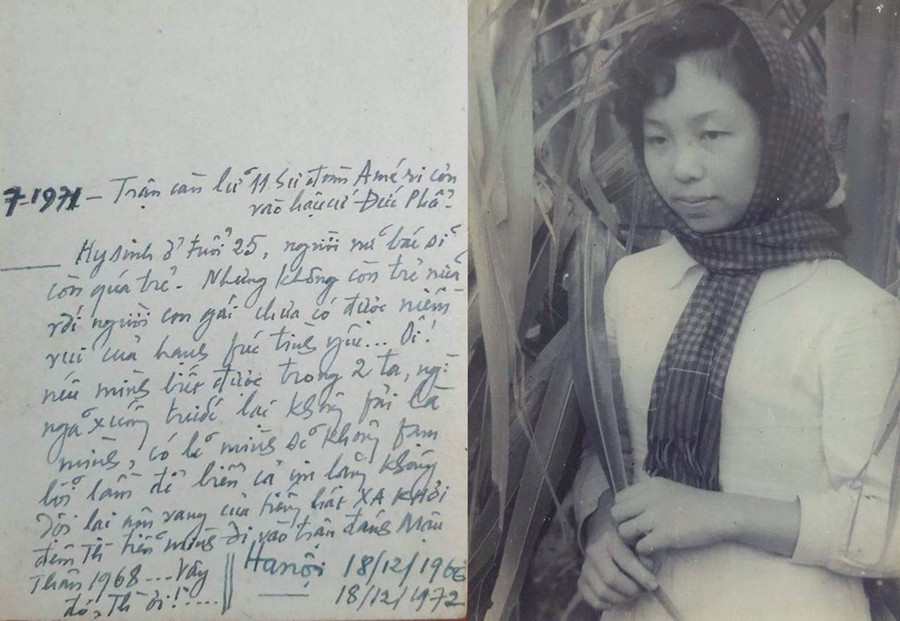 7-1971 – Trận càn lữ 11 sư đoàn Américan
vào hậu cứ Đức Phổ.
Hy sinh ở tuổi 25, người nữ bác sĩ
còn quá trẻ. Nhưng không còn trẻ nữa
với người con gái chưa có được niềm
vui của hạnh fúc tình yêu... Ôi!
nếu mình biết được trong 2 ta, ng:
ngã xuống trước lại không fải là
mình, có lẽ mình sẽ không fạm
lỗi lầm để biển cả im lặng không
dội lại âm vang của tiếng hát XA KHƠI
đêm Th tiễn mình đi vào trận đánh Mậu
Thân 1968... Vậy
đó, Th ơi!....
Hanội 18/12/1966
18/12/1972